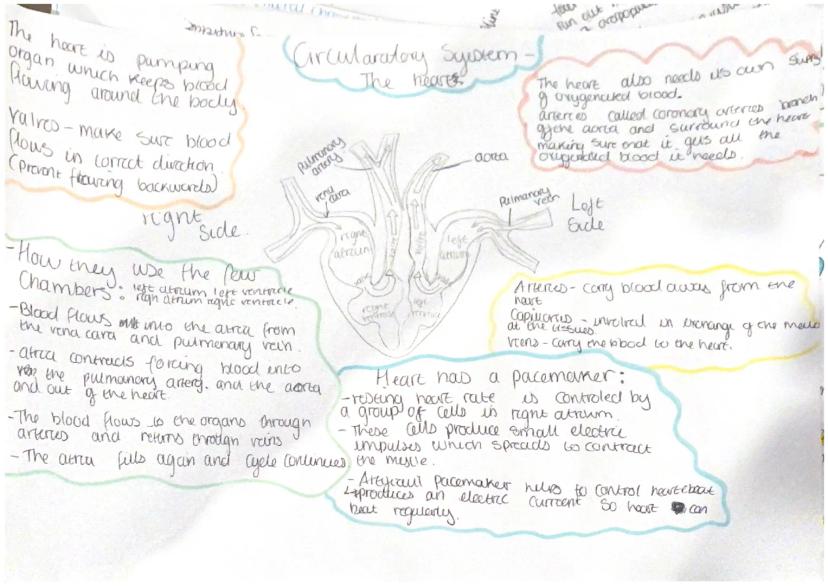 Circularatory System -
The heart
The heart is pumping
organ which keeps blood
flowing around the body.
valves - make sure blood
flows in correct direction
(prevent flowing backwards)
The heart also needs its own supply
of oxygenated blood.
arteries called coronary arteries branch
of the aorta and surround the heart
making sure that it gets all the
oxygenated blood it needs.
pulmonary
artery
aorta
vena
cava
Pulmonary
vein
right
side.
Left
Side
right
atrium
left
atrium
right
left
- How they use the four
Chambers: left atrium left ventricle
right atrium right ventricle
- Blood flows into the atria from
the vena cava and pulmonary vein.
- atria contracts forcing blood into
the pulmonary artery. and the aorta
and out of the heart
- The blood flows to the organs through
arteries and returns through veins
- The atria fills again and cycle continues
Arteries - carry blood away from the
heart
Capillaries - involved in exchange of the
at the tissues.
veins - carry the blood to the heart.
Heart has a pacemaker:
- resting heart rate is controled by
a group of cells in right atrium.
- These cells produce small electric
impulses which spreads to contract
the muscle.
- Artificial pacemaker helps to control heartbeat
↳ produces an electric current so heart can
beat regularly.
Run out